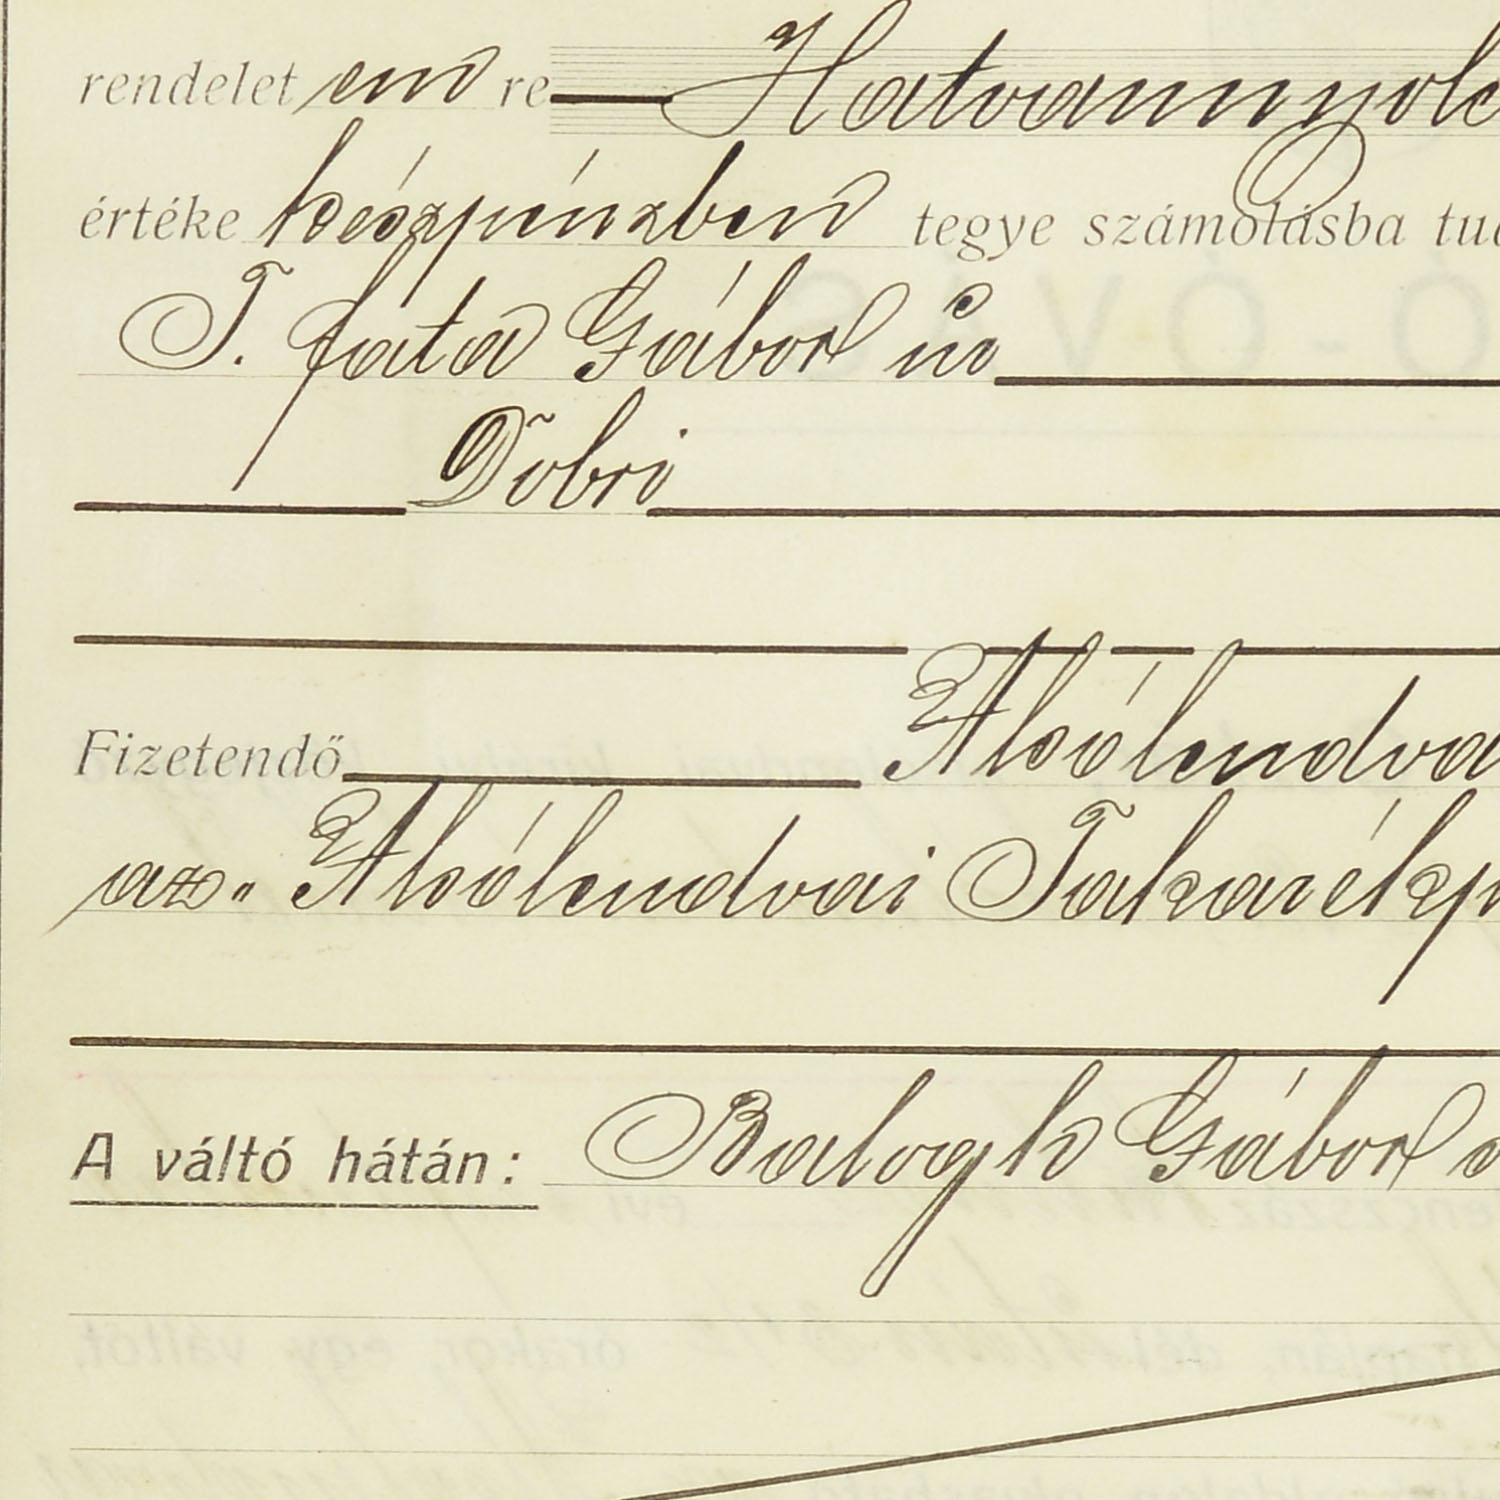 rendelet em re Hatvannyolc
értéke készpénzben tegye számolásba tu
T. Fata Gábor úr
Dobri
Fizetendő Alsólendva
az „Alsólendvai Takarékp
A váltó hátán: Balogh Gábor